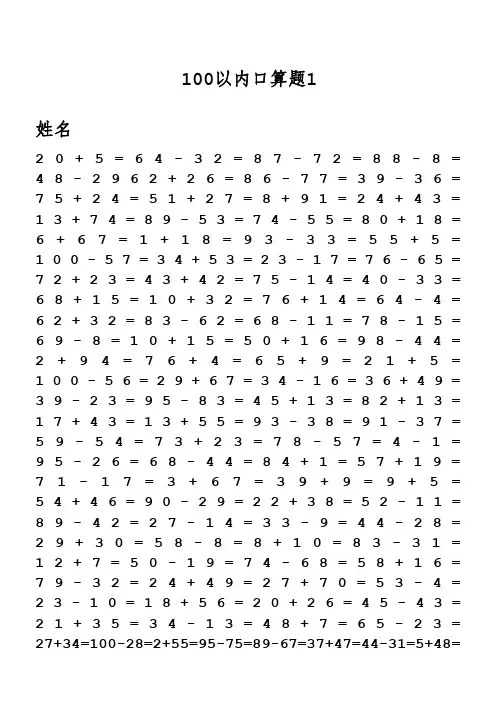 100以内口算题1
姓名
20+5=64-32=87-72=88-8=
48-2962+26=86-77=39-36=
75+24=51+27=8+91=24+43=
13+74=89-53=74-55=80+18=
6+67=1+18=93-33=55+5=
100-57=34+53=23-17=76-65=
72+23=43+42=75-14=40-33=
68+15=10+32=76+14=64-4=
62+32=83-62=68-11=78-15=
69-8=10+15=50+16=98-44=
2+94=76+4=65+9=21+5=
100-56=29+67=34-16=36+49=
39-23=95-83=45+13=82+13=
17+43=13+55=93-38=91-37=
59-54=73+23=78-57=4-1=
95-26=68-44=84+1=57+19=
71-17=3+67=39+9=9+5=
54+46=90-29=22+38=52-11=
89-42=27-14=33-9=44-28=
29+30=58-8=8+10=83-31=
12+7=50-19=74-68=58+16=
79-32=24+49=27+70=53-4=
23-10=18+56=20+26=45-43=
21+35=34-13=48+7=65-23=
27+34=100-28=2+55=95-75=89-67=37+47=44-31=5+48=